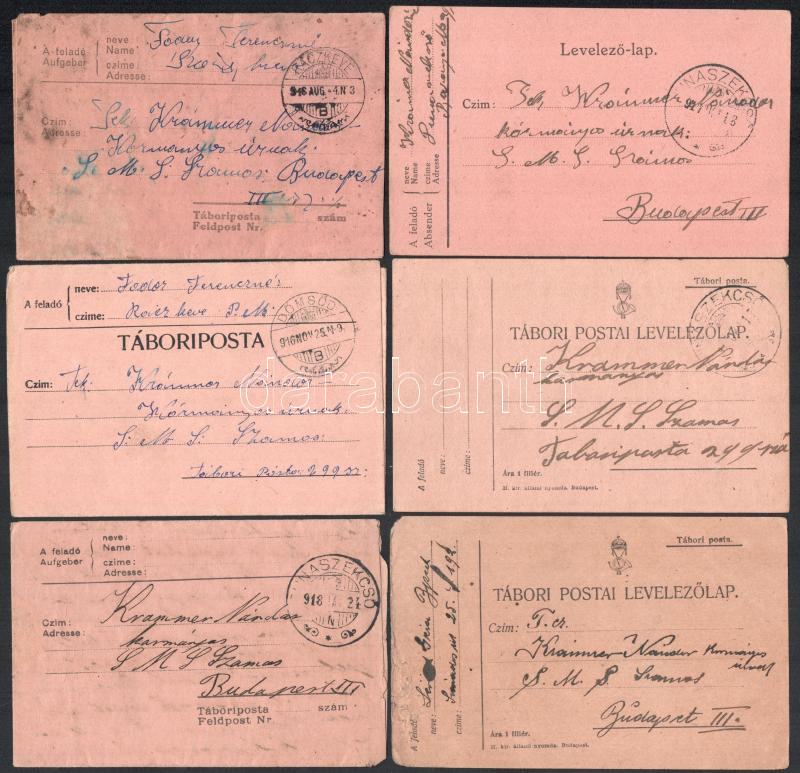 A feladó
Aufgeber
neve
Name
Fodor Ferencné
czime:
Adresse:
RÁCZKEVE
916 AUG. -4. N 3
B
Czím:
Adresse:
Tek Krammer Nándor
Kormányos úrnak
S. M. S. Szamos Budapest
III
Táboriposta szám
Feldpost Nr.
Levelező-lap.
A feladó
Absender
neve
Name
czime
Adresse
Krammer Nándorné
DUNASZEKCSŐ
Czim: Tek Krammer Nándor
kormányos úrnak
S. M. S. Szamos
Budapest III
A feladó
neve: Fodor Ferencné
czime: Ráczkeve P. M.
DÖMSÖD
916 NOV. 25. N. 9.
B
TÁBORIPOSTA
Czim: Tek. Krammer Nándor
Kormányos úrnak
S. M. S. Szamos
Tábori Posta 299
Tábori posta.
DUNASZEKCSŐ
TÁBORI POSTAI LEVELEZŐLAP.
Czim: Krammer Nándor
kormányos
S. M. S. Szamos
Taboriposta 299
A feladó
neve:
czime:
Ára 1 fillér.
M. kir. állami nyomda. Budapest.
A feladó
Aufgeber
neve:
Name:
czime:
Adresse:
DUNASZEKCSŐ
918
N
Czim:
Adresse:
Krammer Nándor
kormányos
S M S Szamos
Budapest III
Táboriposta szám
Feldpost Nr.
Tábori posta.
TÁBORI POSTAI LEVELEZŐLAP.
Czim: T. cz.
Krammer Nándor Kormányos
S. M. S. Szamos
Budapest III.
A feladó
neve:
czime:
Ára 1 fillér.
M. kir. állami nyomda. Budapest.
darabanth